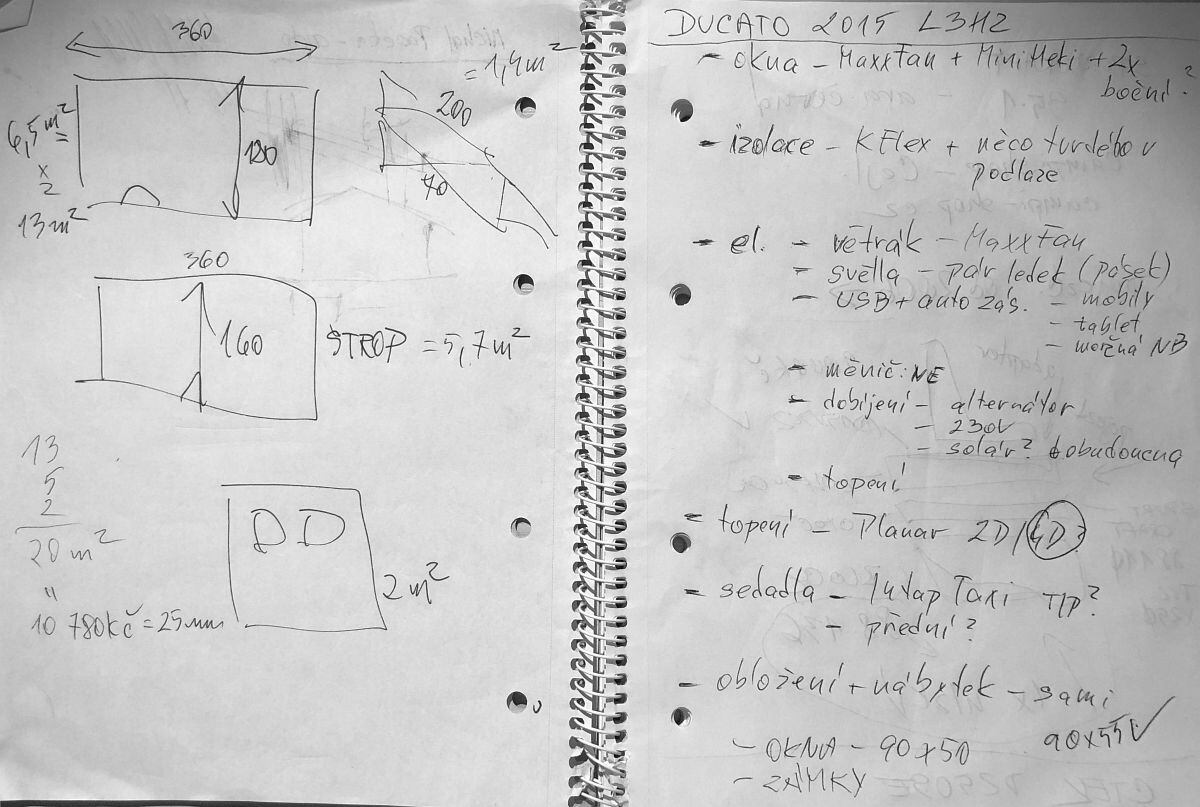 360
6,5 m² =
x
2
13 m²
180
= 1,4 m²
200
40
360
160
STROP = 5,7 m²
13
5
2
20 m²
"
10 780 Kč = 25 mm
2 m²
DUCATO 2015 L3H2
- okna - MaxxFan + MiniHeki + 2x
boční?
- izolace - KFlex + něco tvrdého v
podlaze
- el. - větrák - MaxxFan
- světla - pár ledek (pásek)
- USB + auto zás. - mobily
- tablet
- možná NB
- měnič: NE
- dobíjení - alternátor
- 230V
- solár? dobudoucna
- topení
- topení - Planar 2D/4D?
- sedadla - Intap Taxi TIP?
- přední?
- obložení + nábytek - sami
- OKNA - 90x50
90x55 V
- ZÁMKY